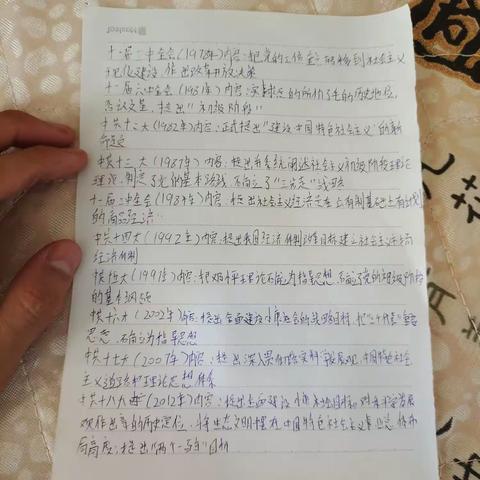 Maxleaf
十一届三中全会(1978年)内容:把党的工作重心转移到社会主义
现代化建设,作出改革开放决策
十一届六中全会(1981年)内容:实事求是的评价了毛的历史地位,
否认文革,提出"初级阶段"
中共十二大(1982年)内容:正式提出"建设中国特色社会主义"的崭新
命题
中共十三大(1987年)内容:提出系统阐述社会主义初级阶段理论
理论,制定了党的基本路线,确立了"三步走"战略
十二届三中全会(1984年)内容:提出社会主义经济是在公有制基础上有计划
的商品经济
中共十四大(1992年)内容:提出我国经济体制改革目标建立社会主义市场
经济体制
中共十五大(1997年)内容:把邓小平理论确立为指导思想,确定了党的初级阶段
的基本纲领
中共十六大(2002年)内容:提出全面建设小康社会的战略目标,把"三个代表"重要
思想,确立为指导思想
中共十七大(2007年)内容:提出深入贯彻落实科学发展观,中国特色社会
主义道路和理论思想体系
中共十八大(2012年)内容:提出全面建设小康社会目标,对科学发展
观作出新的历史定位,将生态文明摆在中国特色社会主义总体布
局高度,提出"两个一百年"目标